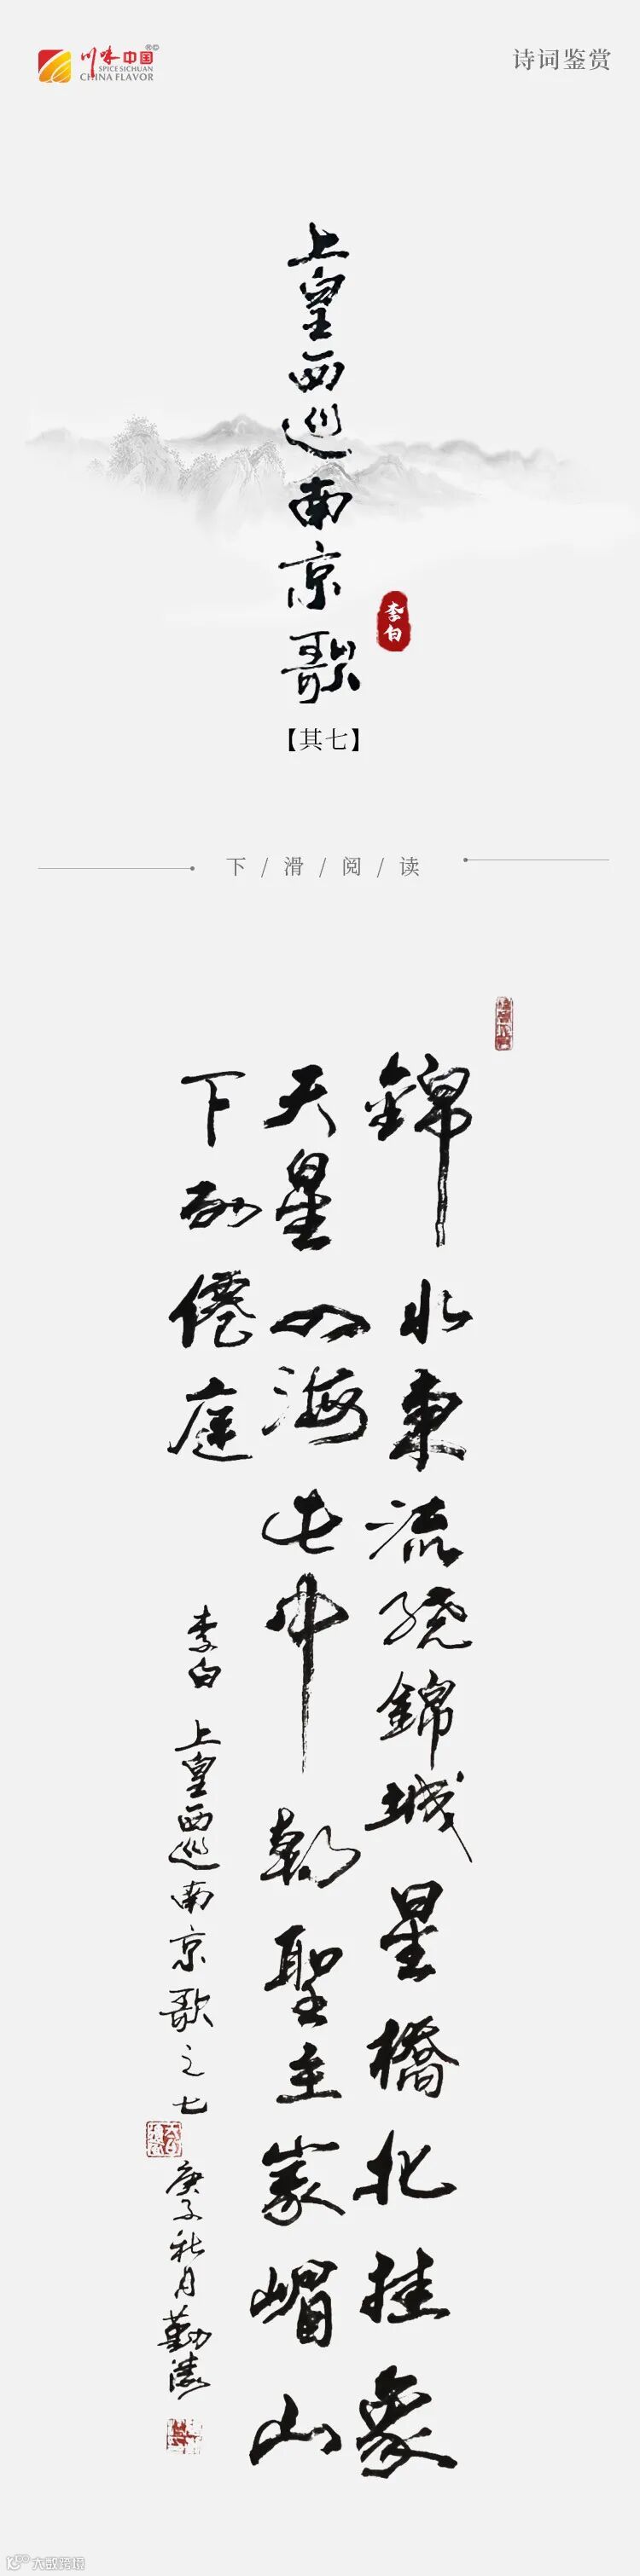 川味中国®©
SPICE SICHUAN
CHINA FLAVOR
诗词鉴赏
上皇西巡南京歌
李白
【其七】
下/滑/阅/读
錦水東流繞錦城星橋北挂象
天星四海此中朝聖主峩嵋山
下列僊庭
李白 上皇西巡南京歌之七 庚子秋月勤
大数跨境